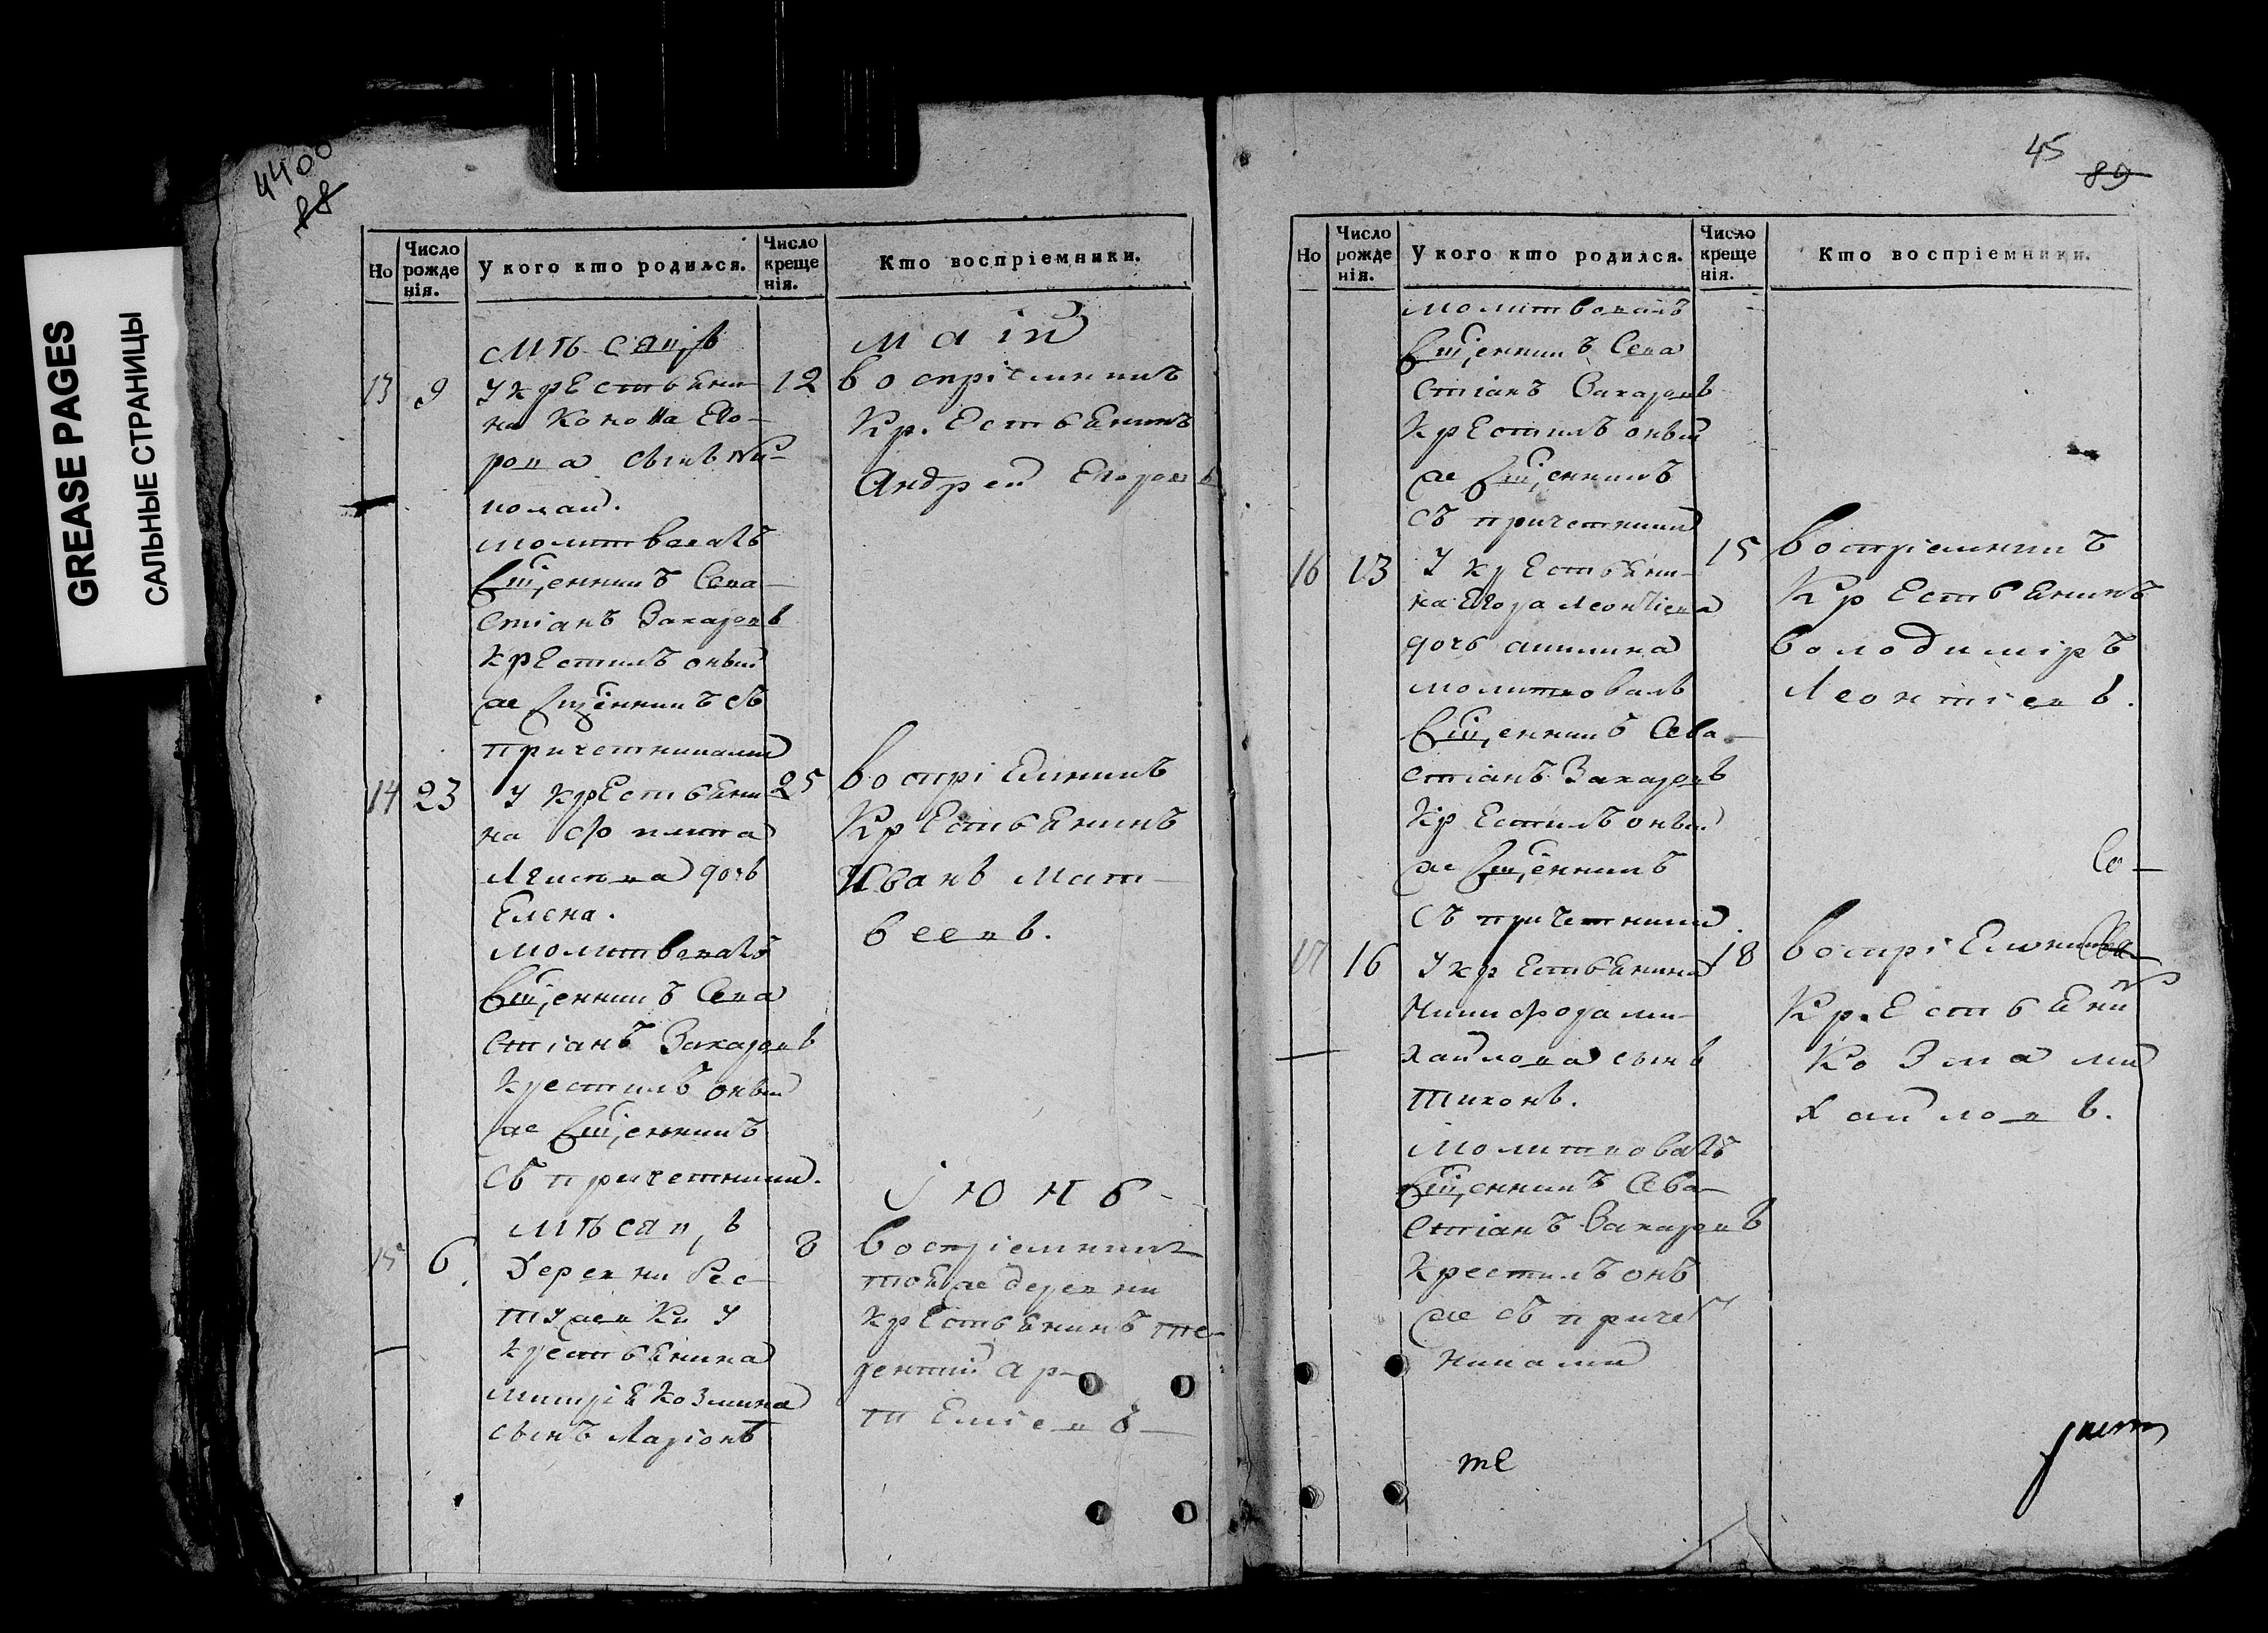 GREASE PAGES
САЛЬНЫЕ СТРАНИЦЫ
4400
88
Но
Число рожде нія.
У кого кто родился.
Число креще нія.
Кто воспріемники.
мѣсацъ
маій
13 9 У крестьяни- 12
на Конона Его-
рова сынъ Ни-
колай.
молитвовалъ
сщ҃енникъ Сева-
стіанъ Захаровъ
крестилъ оный
же сщ҃енникъ съ
причетниками
воспріемникъ
крестьянинъ
Андрей Егоровъ
14 23 У крестьяни 25
на
дочь
Елена.
молитвовалъ
сщ҃енникъ Сева
стіанъ Захаровъ
крестилъ оный
же сщ҃енникъ
съ причетники.
воспріемникъ
крестьянинъ
Иванъ Мат-
веевъ.
мѣсацъ
іюнь
15 6. деревни Рес- 8
у
крестьянина
Козмина
сынъ Ларіонъ
воспріемникъ
тояже деревни
крестьянинъ Те-
рентій Ар-
темиевъ
45
89
Но
Число рожде нія.
У кого кто родился.
Число креще нія.
Кто воспріемники.
молитвовалъ
сщ҃енникъ Сева
стіанъ Захаровъ
крестилъ оный
же сщ҃енникъ
съ причетники
16 13 У крестьяни- 15
на Егора Леонтіева
дочь Акилина
молитвовалъ
сщ҃енникъ Сева-
стіанъ Захаровъ
крестилъ оный
же сщ҃енникъ
съ причетники.
воспріемникъ
крестьянинъ
Володимiръ
Леонтіевъ.
Со-
17 16 У крестьянина 18
Никифора Ми-
хайлова сынъ
Тихонъ.
молитвовалъ
сщ҃енникъ Сева-
стіанъ Захаровъ
крестилъ онъ
же съ причет
никами
воспріемникъ
крестьянинъ
Козма Ми
хайловъ.